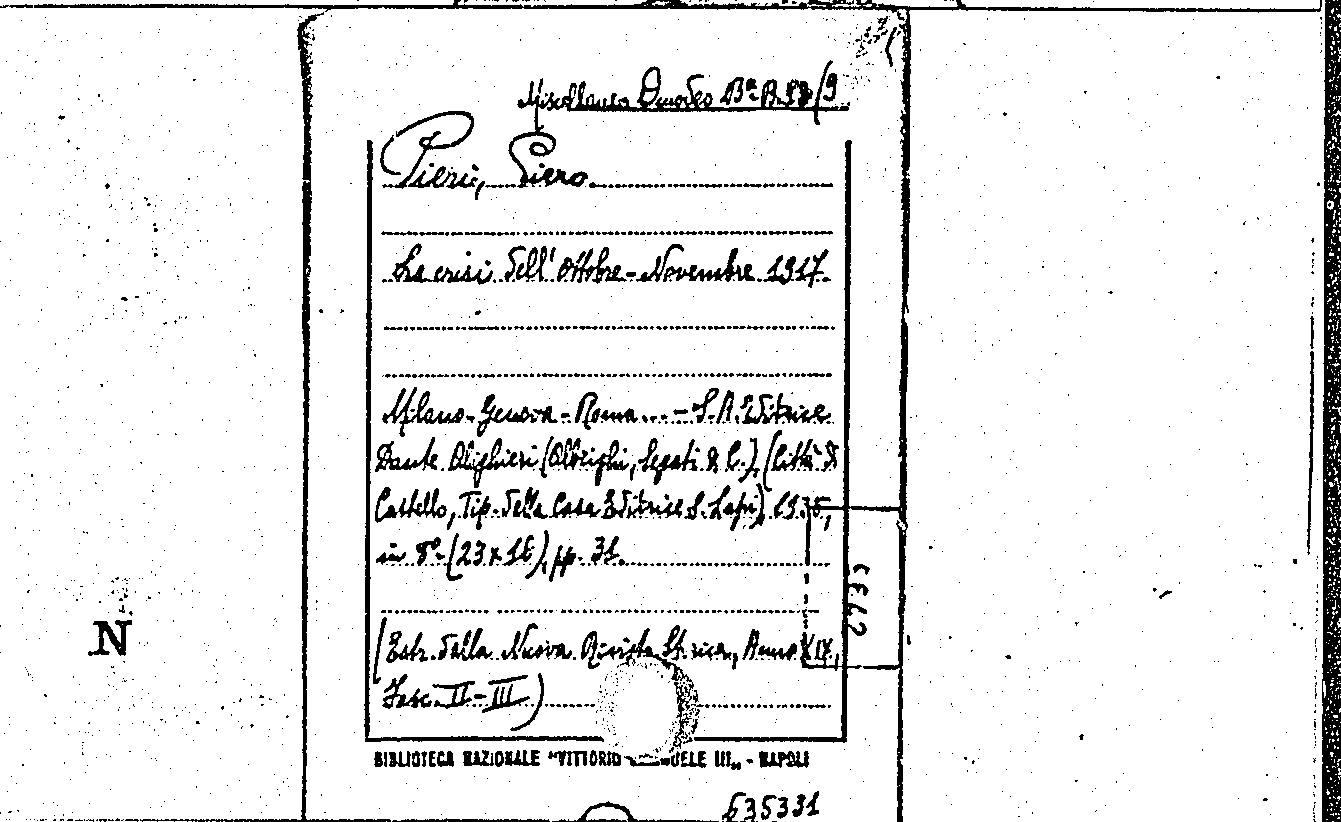 Miscellanea Omodeo Bª B. /9
Pieri, Piero.
La crisi dell'Ottobre-Novembre 1917.
Milano-Genova-Roma...-S.A. Editrice
Dante Alighieri (Albrighi, Segati & C.), (Città di
Castello, Tip. della Casa Editrice S. Lapi) 1935,
in 8º (23x16), pp. 31.
(Estr. dalla Nuova Rivista Storica, Anno XIX,
Fasc. II-III)
N
BIBLIOTECA NAZIONALE "VITTORIO EMANUELE III" - NAPOLI
635331